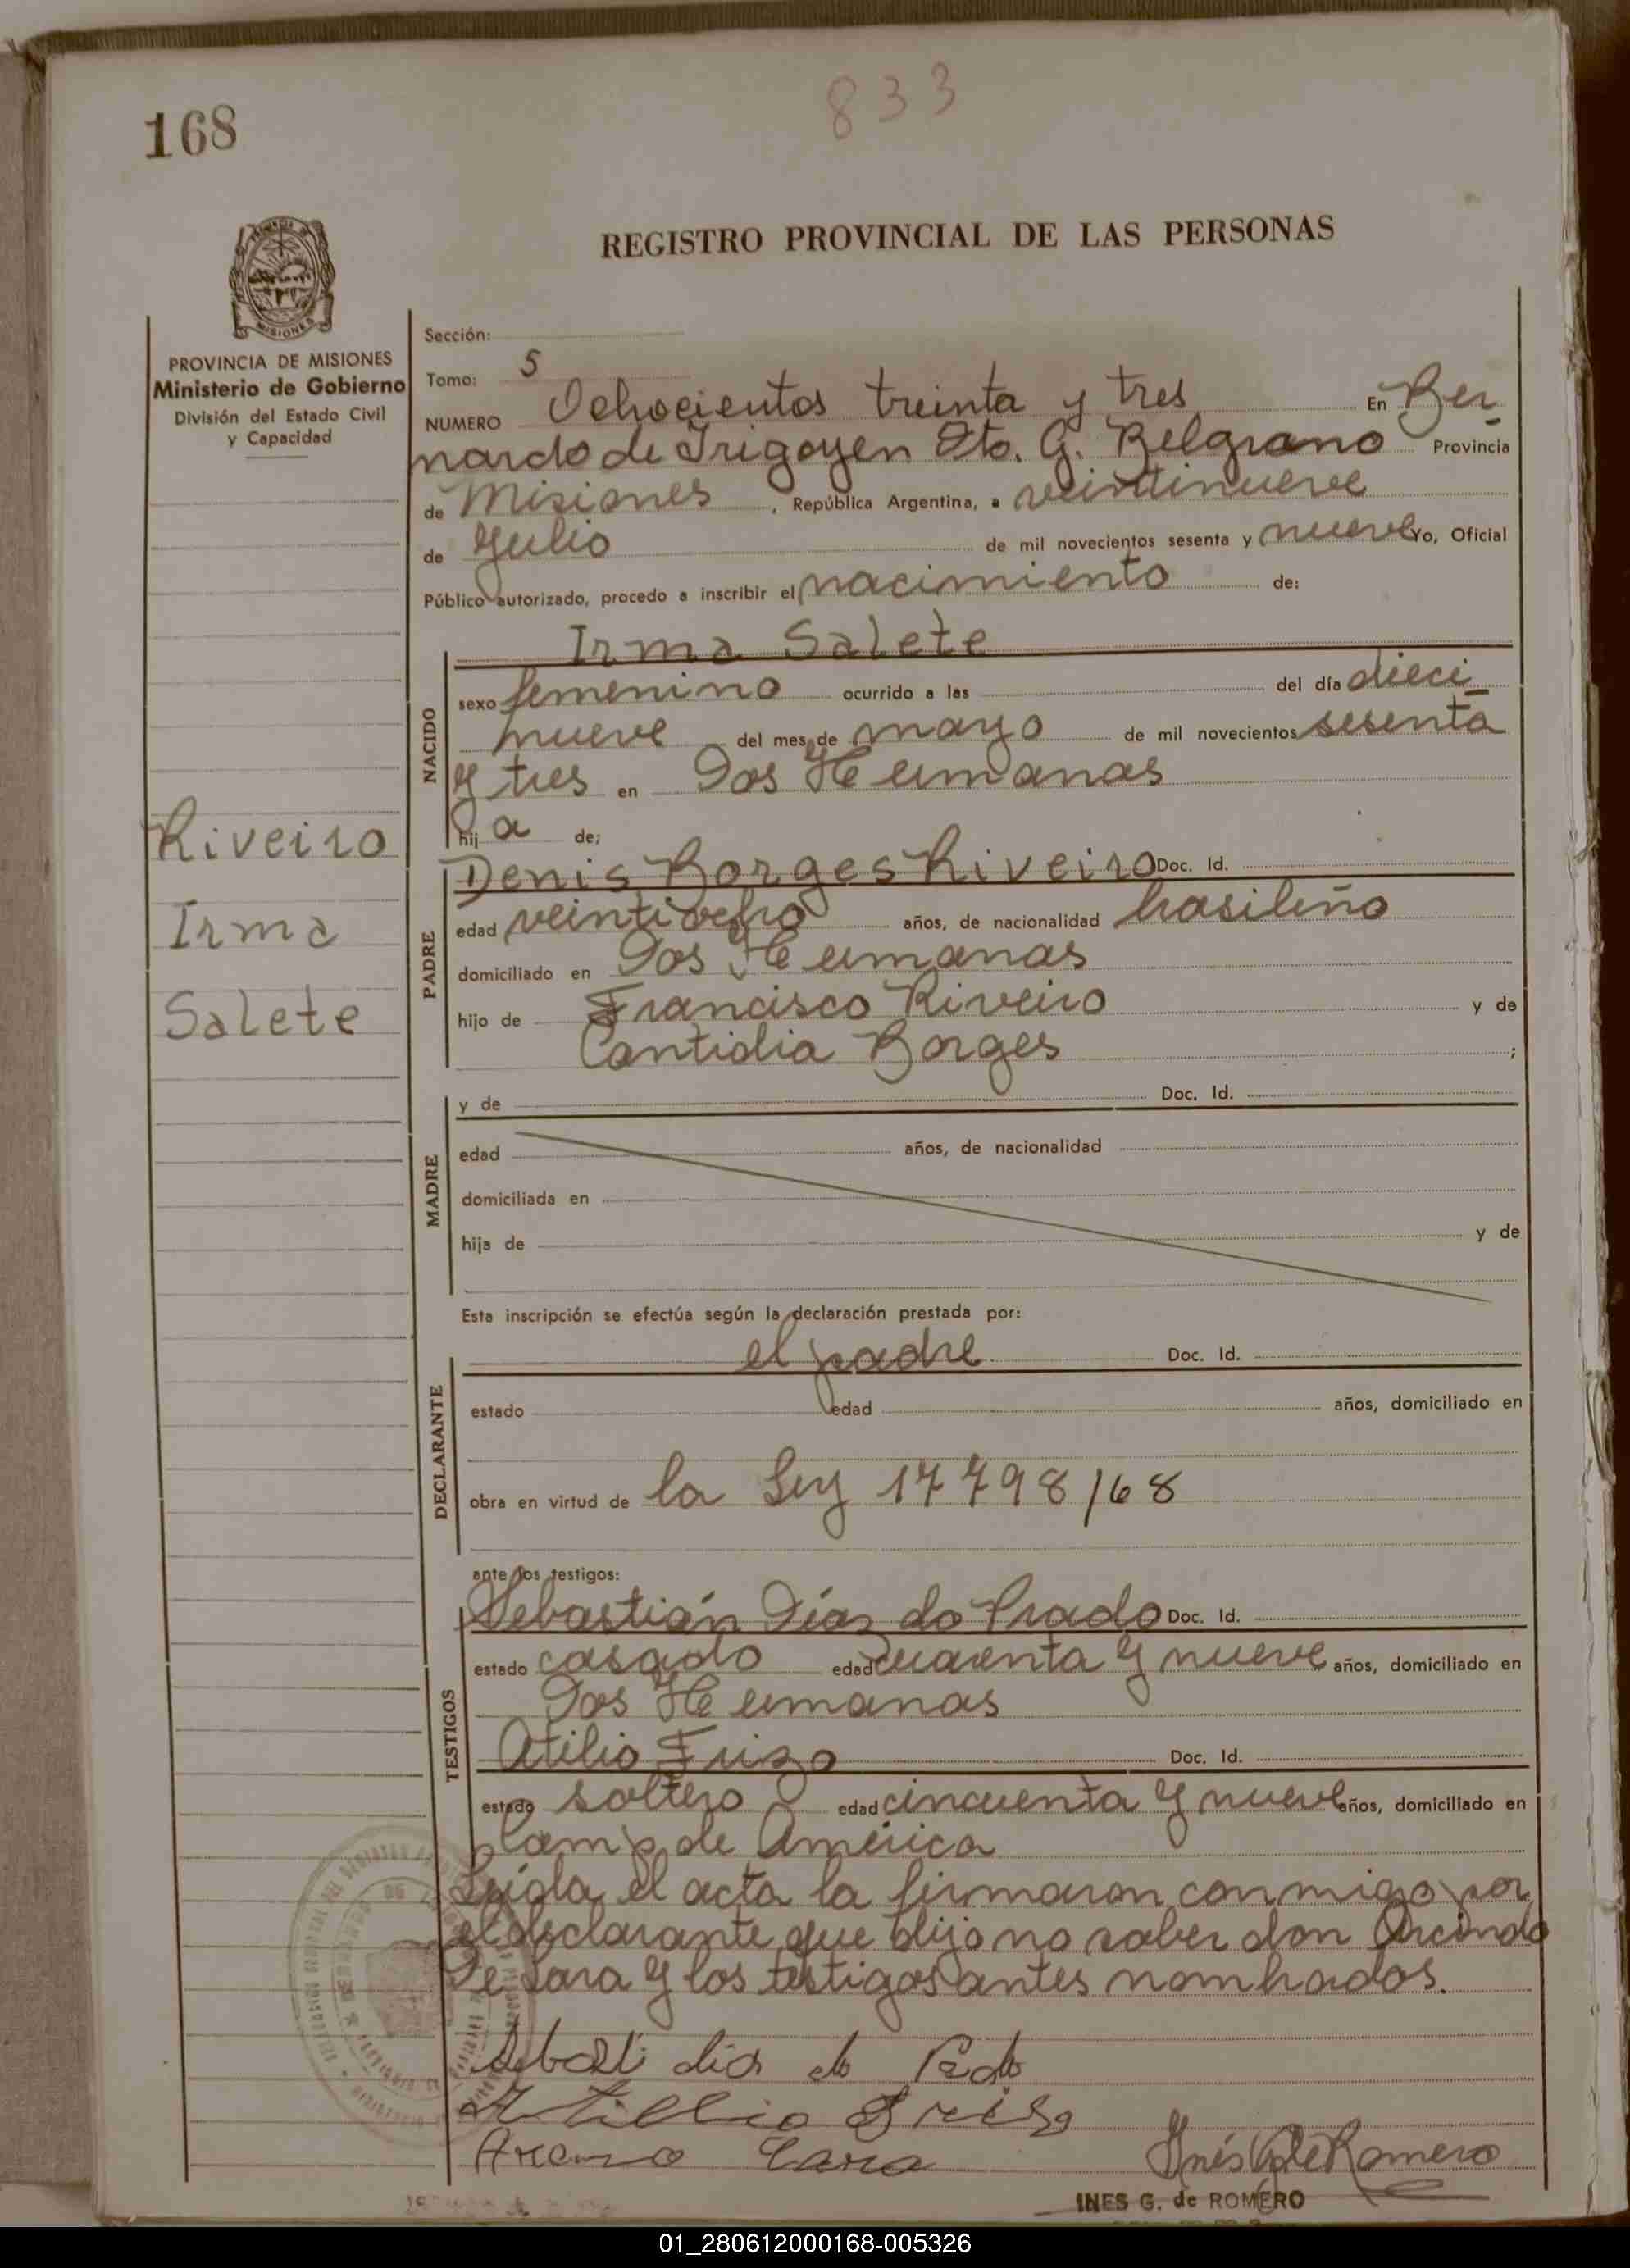 833
168
REGISTRO PROVINCIAL DE LAS PERSONAS
MISIONES
PROVINCIA DE MISIONES
Ministerio de Gobierno
División del Estado Civil
y Capacidad
Riveiro
Irma
Salete
Sección:
Tomo: 5
NUMERO Ochocientos treinta y tres En Ber-
nardo de Irigoyen Dto. G. Belgrano Provincia
de Misiones, República Argentina, a veintinueve
de Julio de mil novecientos sesenta y nueve Yo, Oficial
Público autorizado, procedo a inscribir el nacimiento de:
Irma Salete
NACIDO
sexo femenino ocurrido a las del día dieci-
nueve del mes de mayo de mil novecientos sesenta
y tres en Dos Hermanas
hija de;
Denis Borges Riveiro Doc. Id.
PADRE
edad veintiocho años, de nacionalidad brasileño
domiciliado en Dos Hermanas
hijo de Francisco Riveiro y de
Cantidia Borges ;
MADRE
y de Doc. Id.
edad años, de nacionalidad
domiciliada en
hija de y de
Esta inscripción se efectúa según la declaración prestada por:
DECLARANTE
el padre Doc. Id.
estado edad años, domiciliado en
obra en virtud de la Ley 17798/68
ante los testigos:
TESTIGOS
Sebastián Díaz do Prado Doc. Id.
estado casado edad cuarenta y nueve años, domiciliado en
Dos Hermanas
Atilio Friso Doc. Id.
estado soltero edad cincuenta y nueve años, domiciliado en
Camp. de América
Leída el acta la firmaron conmigo por
el declarante que dijo no saber don Arcindo
De Lara y los testigos antes nombrados.
Atillio Friso
Lara
Inés G de Romero
INES G. de ROMERO
01_280612000168-005326